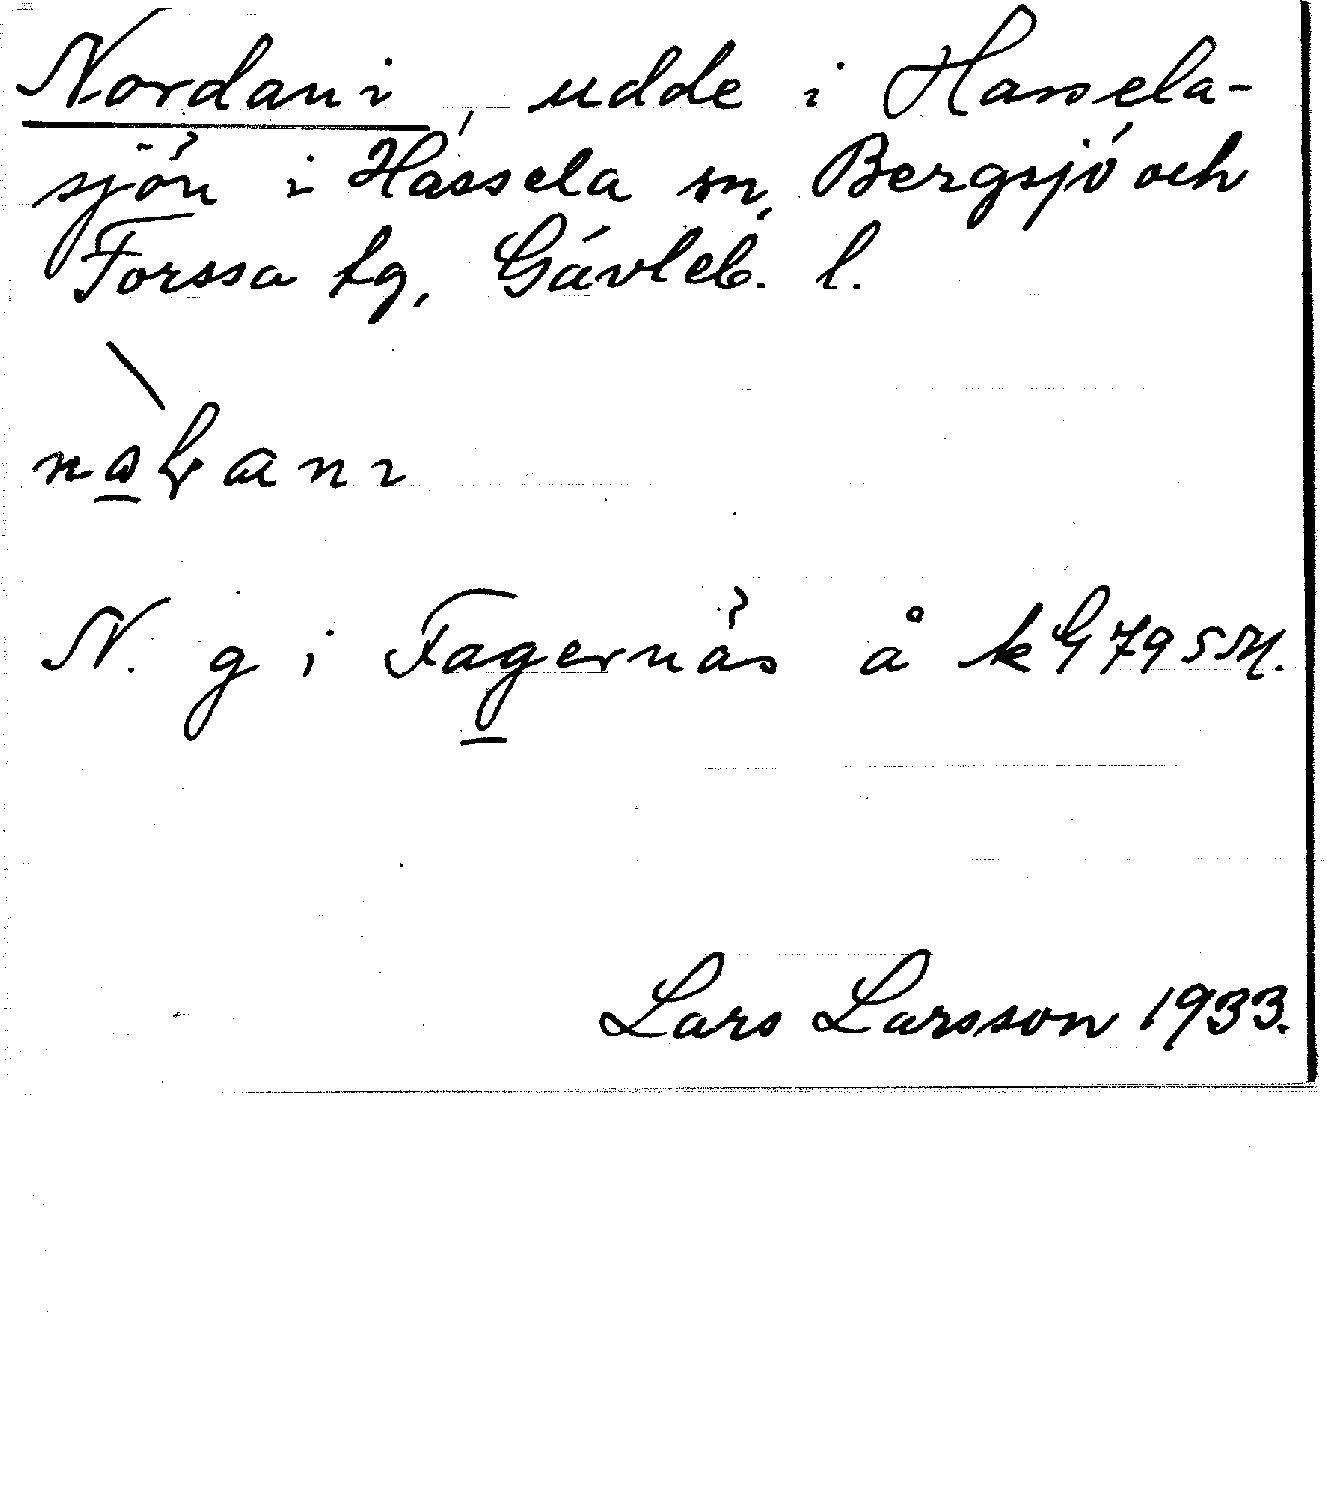 Nordani, udde i Hassela-
sjön i Hassela sn, Bergsjö och
Forssa tg, Gävleb. l.
N. g i Fagernäs å k G 795 M.
Lars Larsson 1933.